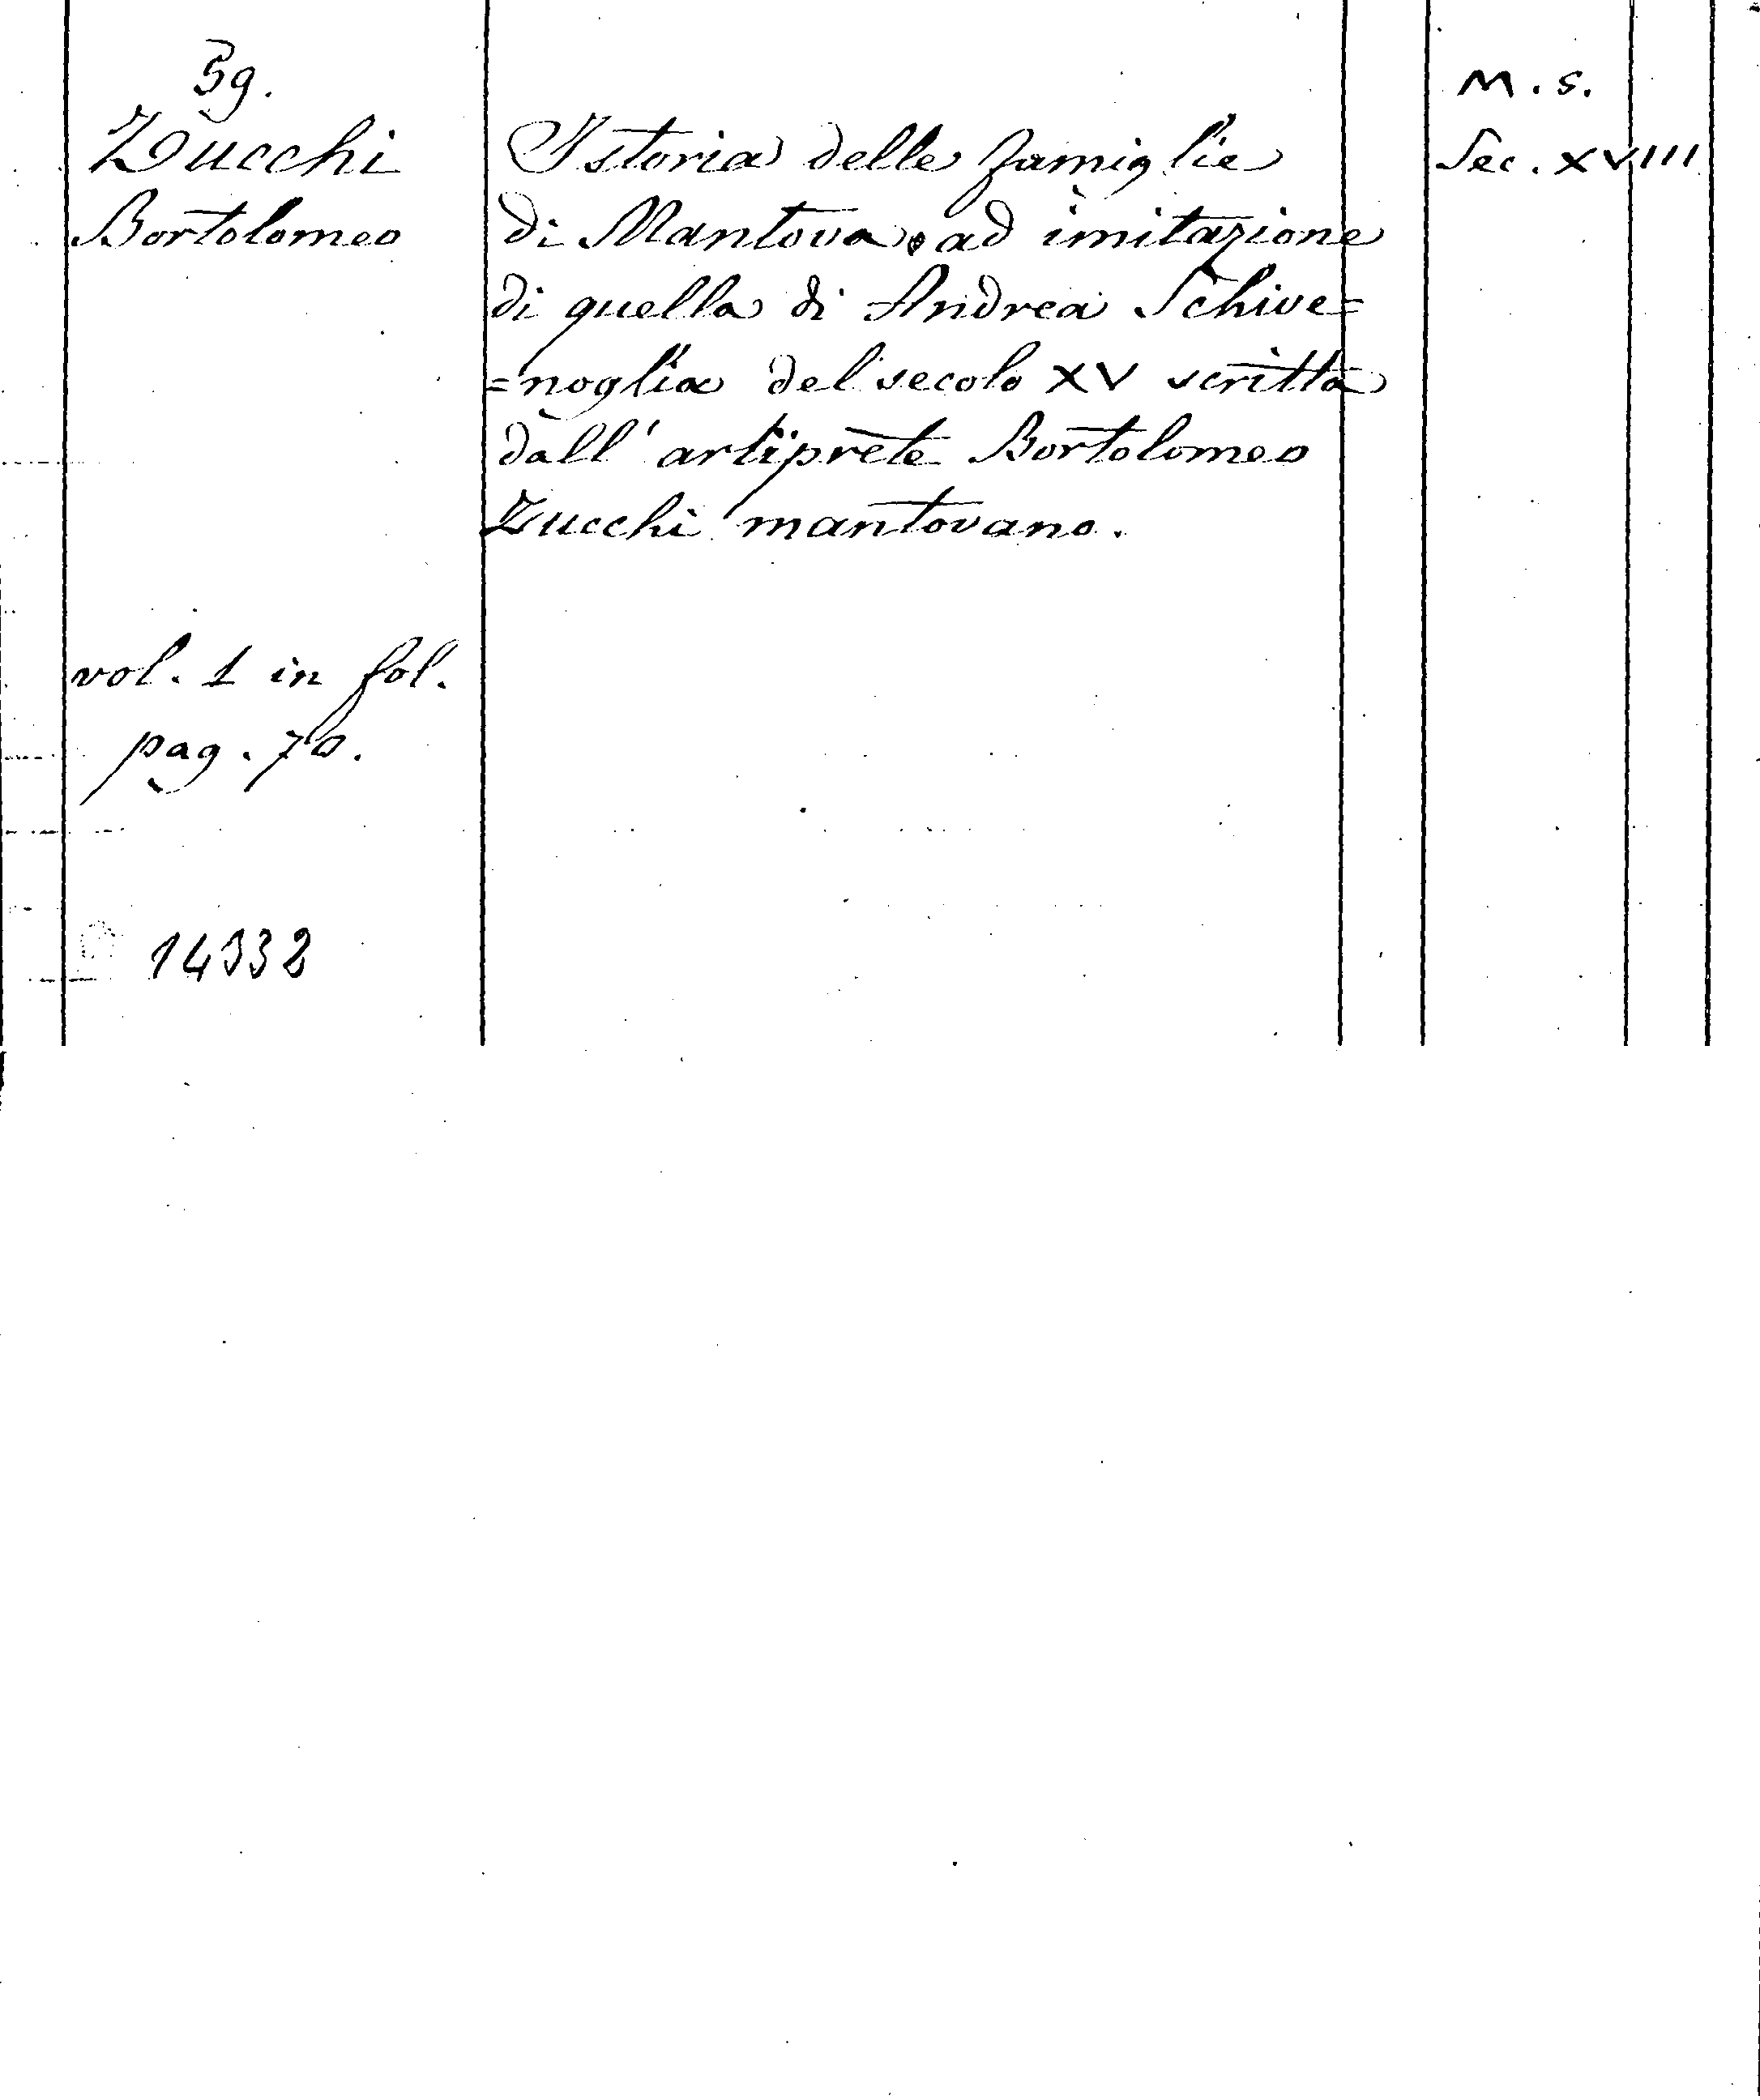 59.
Zucchi
Bortolomeo
vol. 1 in fol.
pag. 70.
14332
Istoria delle famiglie
di Mantova, ad imitazione
di quella di Andrea Schive=
=noglia del secolo XV scritta
dall' artiprete Bortolomeo
Zucchi mantovano.
M. s.
Sec. XVIII